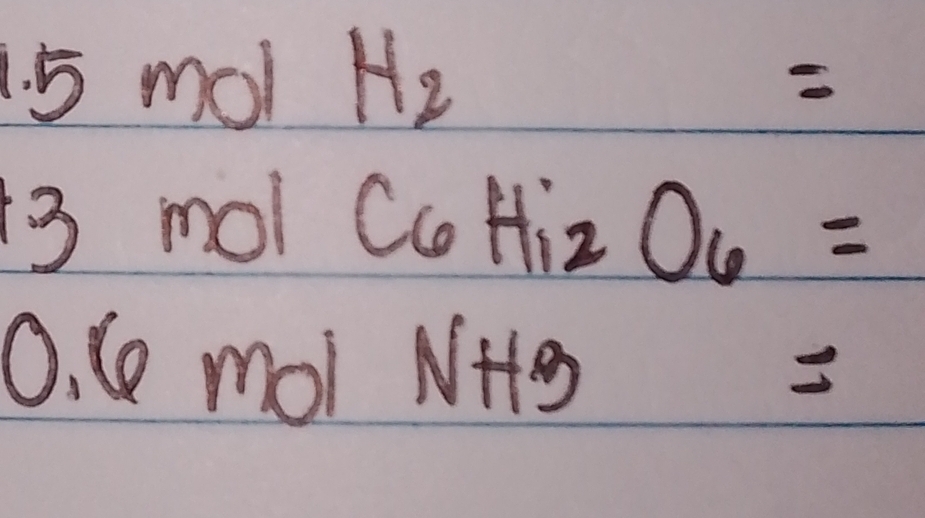 1.5 mol H2 =
1.3 mol C6 H12 O6 =
0.6 mol NH3 =